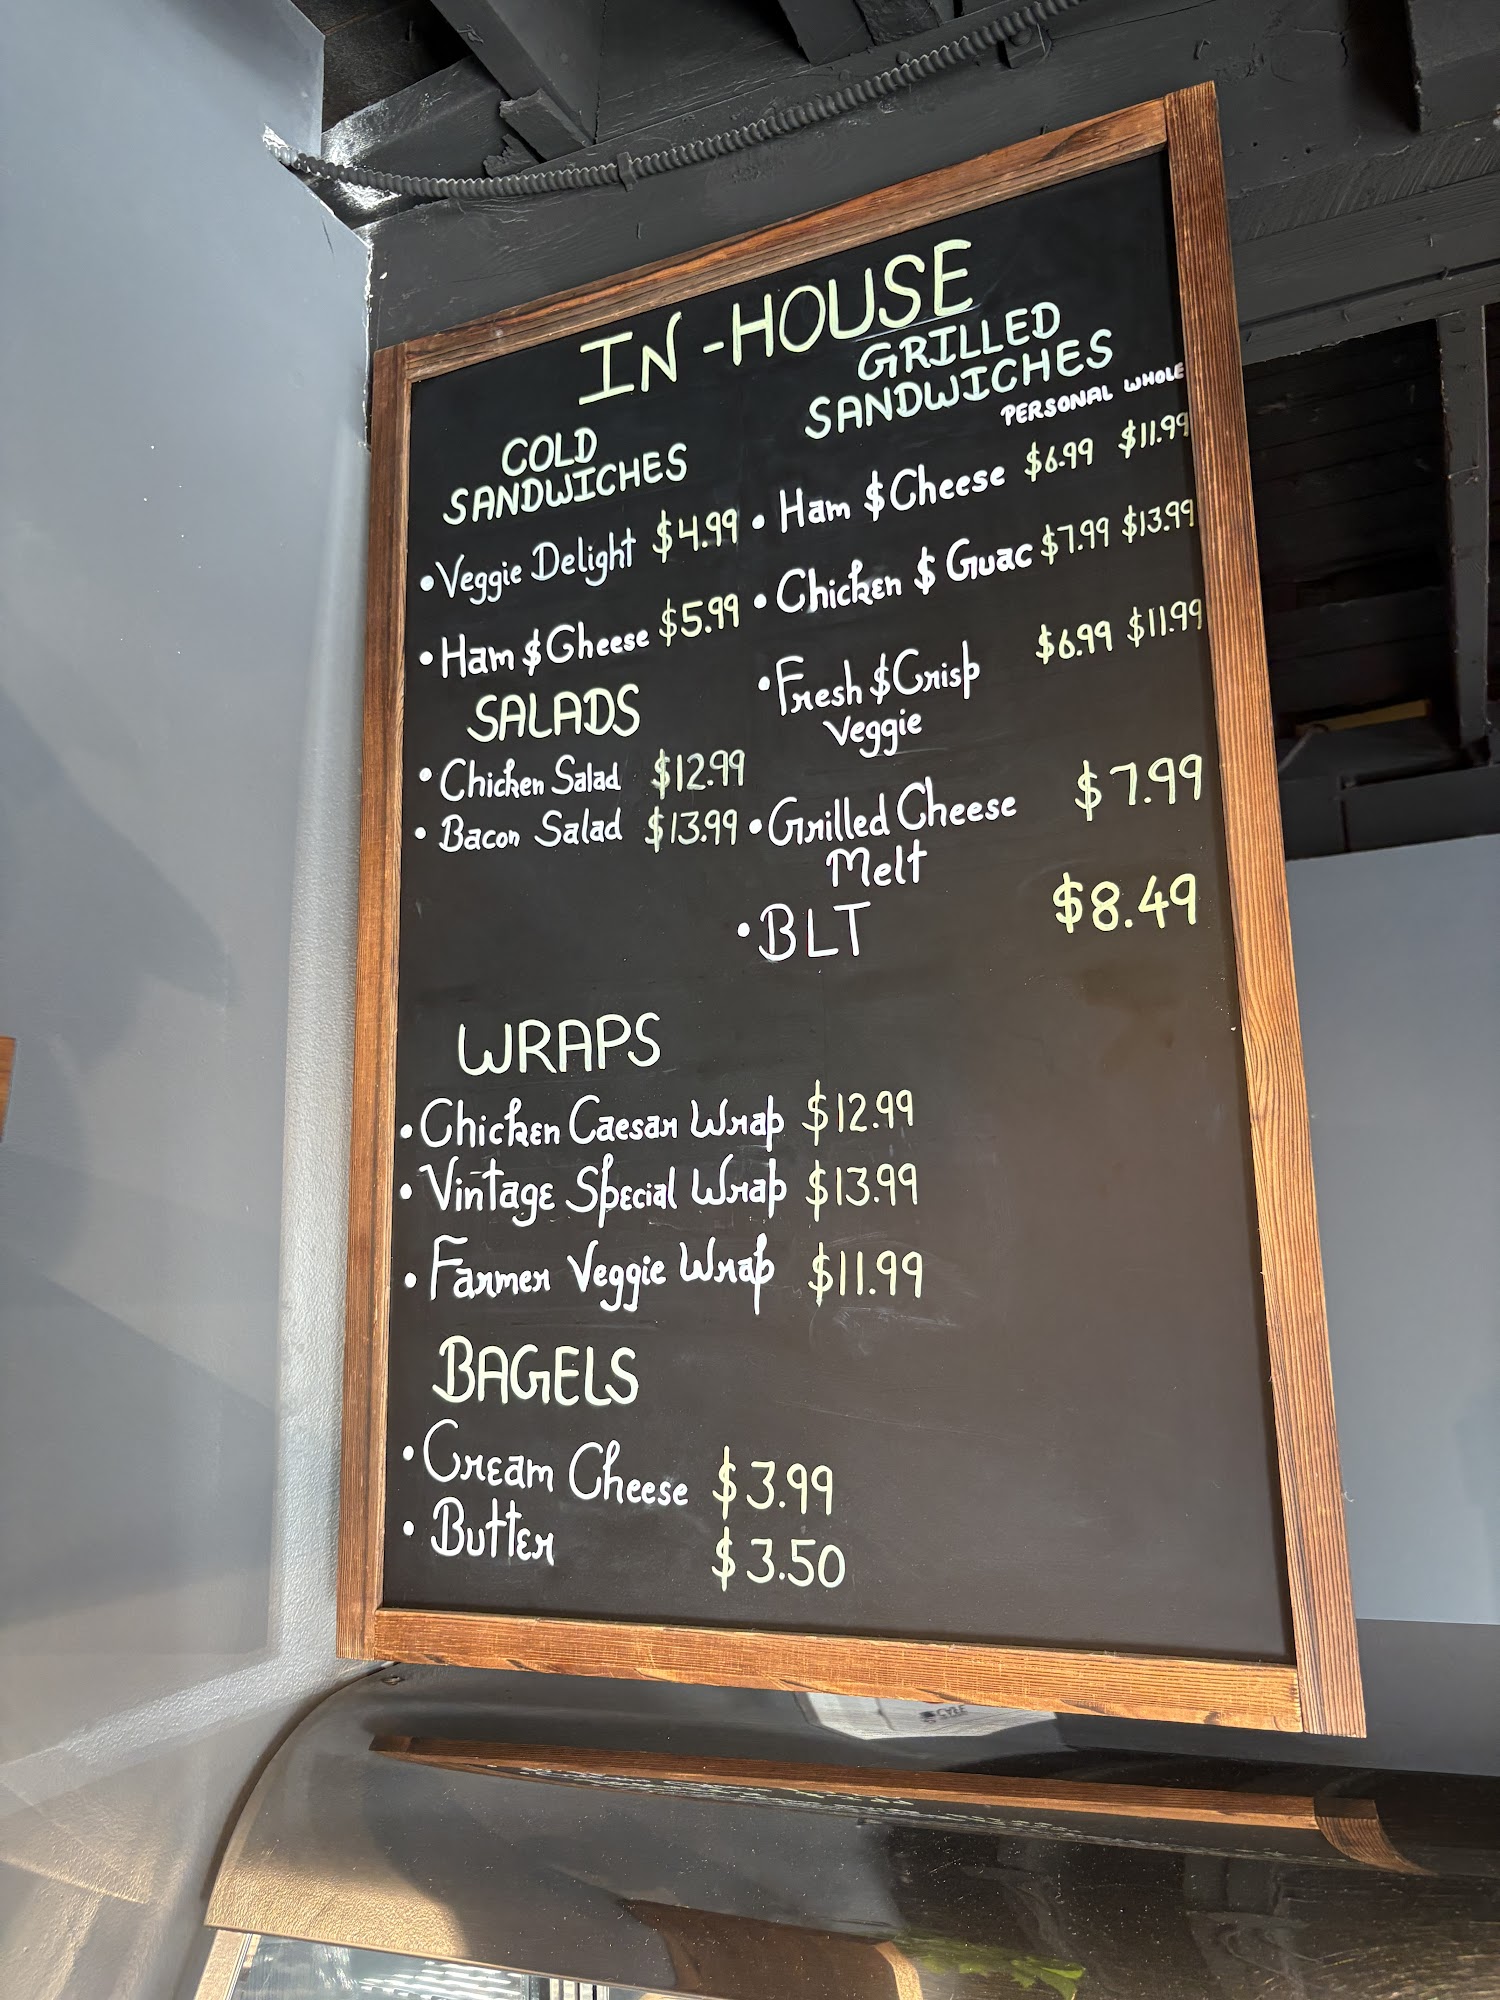 IN-HOUSE
COLD
SANDWICHES
• Veggie Delight $4.99
• Ham $ Cheese $5.99
SALADS
• Chicken Salad $12.99
• Bacon Salad $13.99
GRILLED
SANDWICHES
PERSONAL WHOLE
• Ham $ Cheese $6.99 $11.99
• Chicken $ Guac $7.99 $13.99
• Fresh $ Crisp $6.99 $11.99
Veggie
• Grilled Cheese $7.99
Melt
• BLT $8.49
WRAPS
• Chicken Caesar Wrap $12.99
• Vintage Special Wrap $13.99
• Farmer Veggie Wrap $11.99
BAGELS
• Cream Cheese $3.99
• Butter $3.50